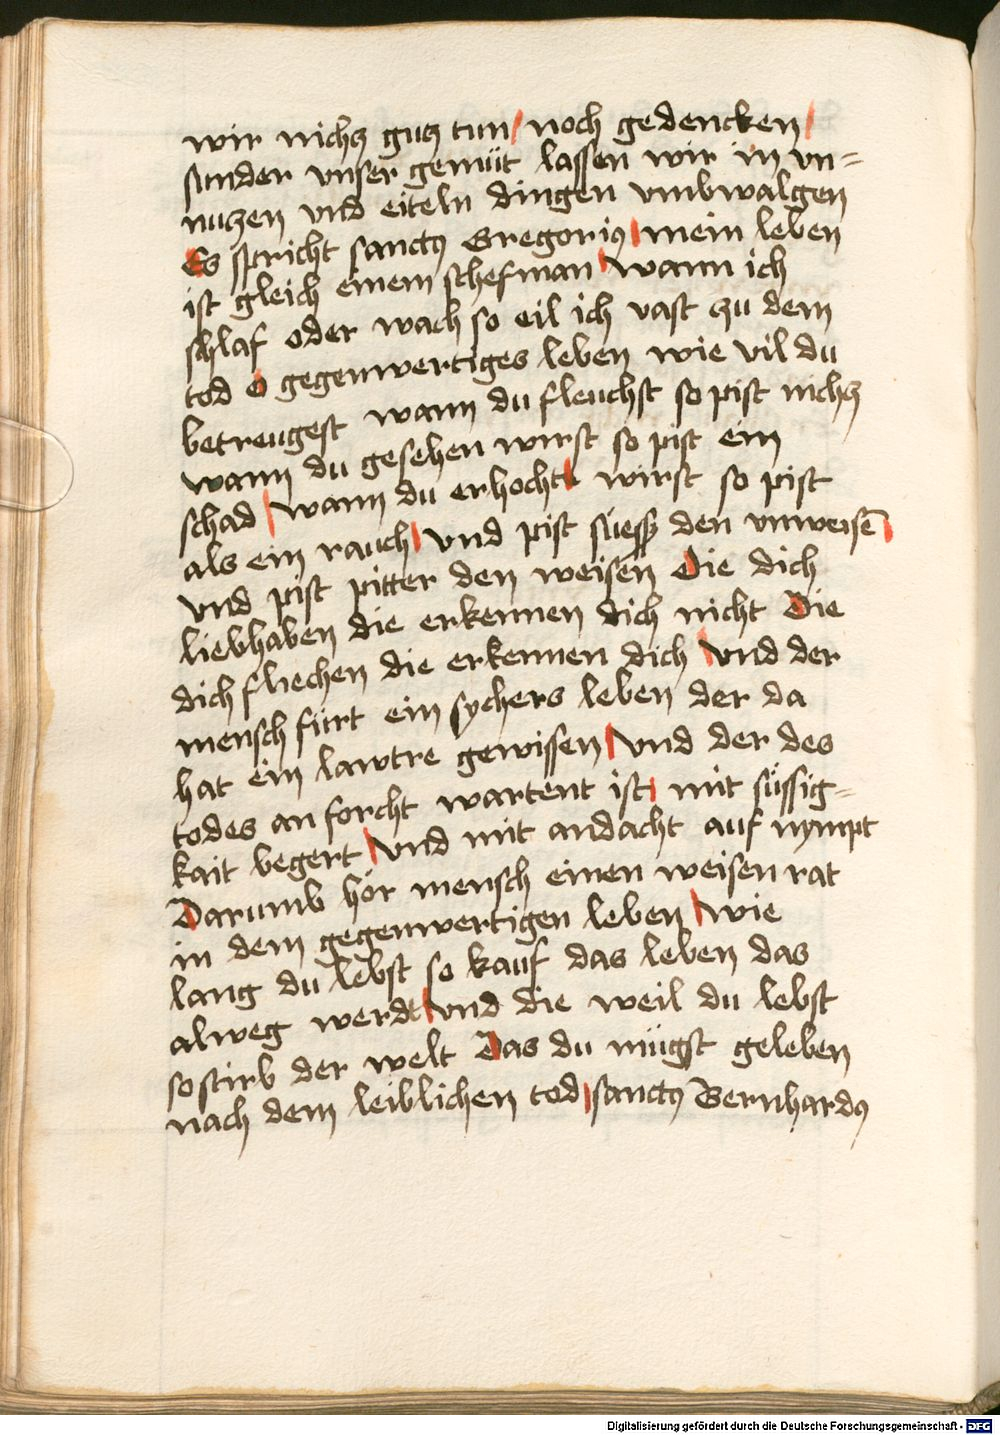 wir nichtz gutz tun / noch gedencken /
sunder vnser gemüt lassen wir in vn=
nutzen vnd eiteln dingen vmbwalgen
Es spricht sanctus Gregorius / mein leben
ist gleich einem schefman / wann ich
schlaf oder wach so eil ich vast zu dem
tod O gegenwertiges leben wie vil du
betreugest wann du fleuchst so pist nichtz
wann du gesehen wirst so pist ein
schad / wann du erhocht wirst so pist
als ein rauch / vnd pist suess den vnweisē /
vnd pist pitter den weisen Die dich
liebhaben die erkennen dich nicht Die
dich fliechen die erkennen dich / vnd der
mensch fürt ein sychers leben der da
hat ein lawtre gewissen / vnd der des
todes an forcht wartent ist / mit süssig=
kait begert / vnd mit andacht auf nympt
Darumb hör mensch einen weisen rat
in dem gegenwertigen leben / wie
lang du lebst so kauf das leben das
alweg werdt / vnd die weil du lebst
so stirb der welt Das du mügst geleben
nach dem leiblichen tod / sanctus Bernhardus
Digitalisierung gefördert durch die Deutsche Forschungsgemeinschaft - DFG